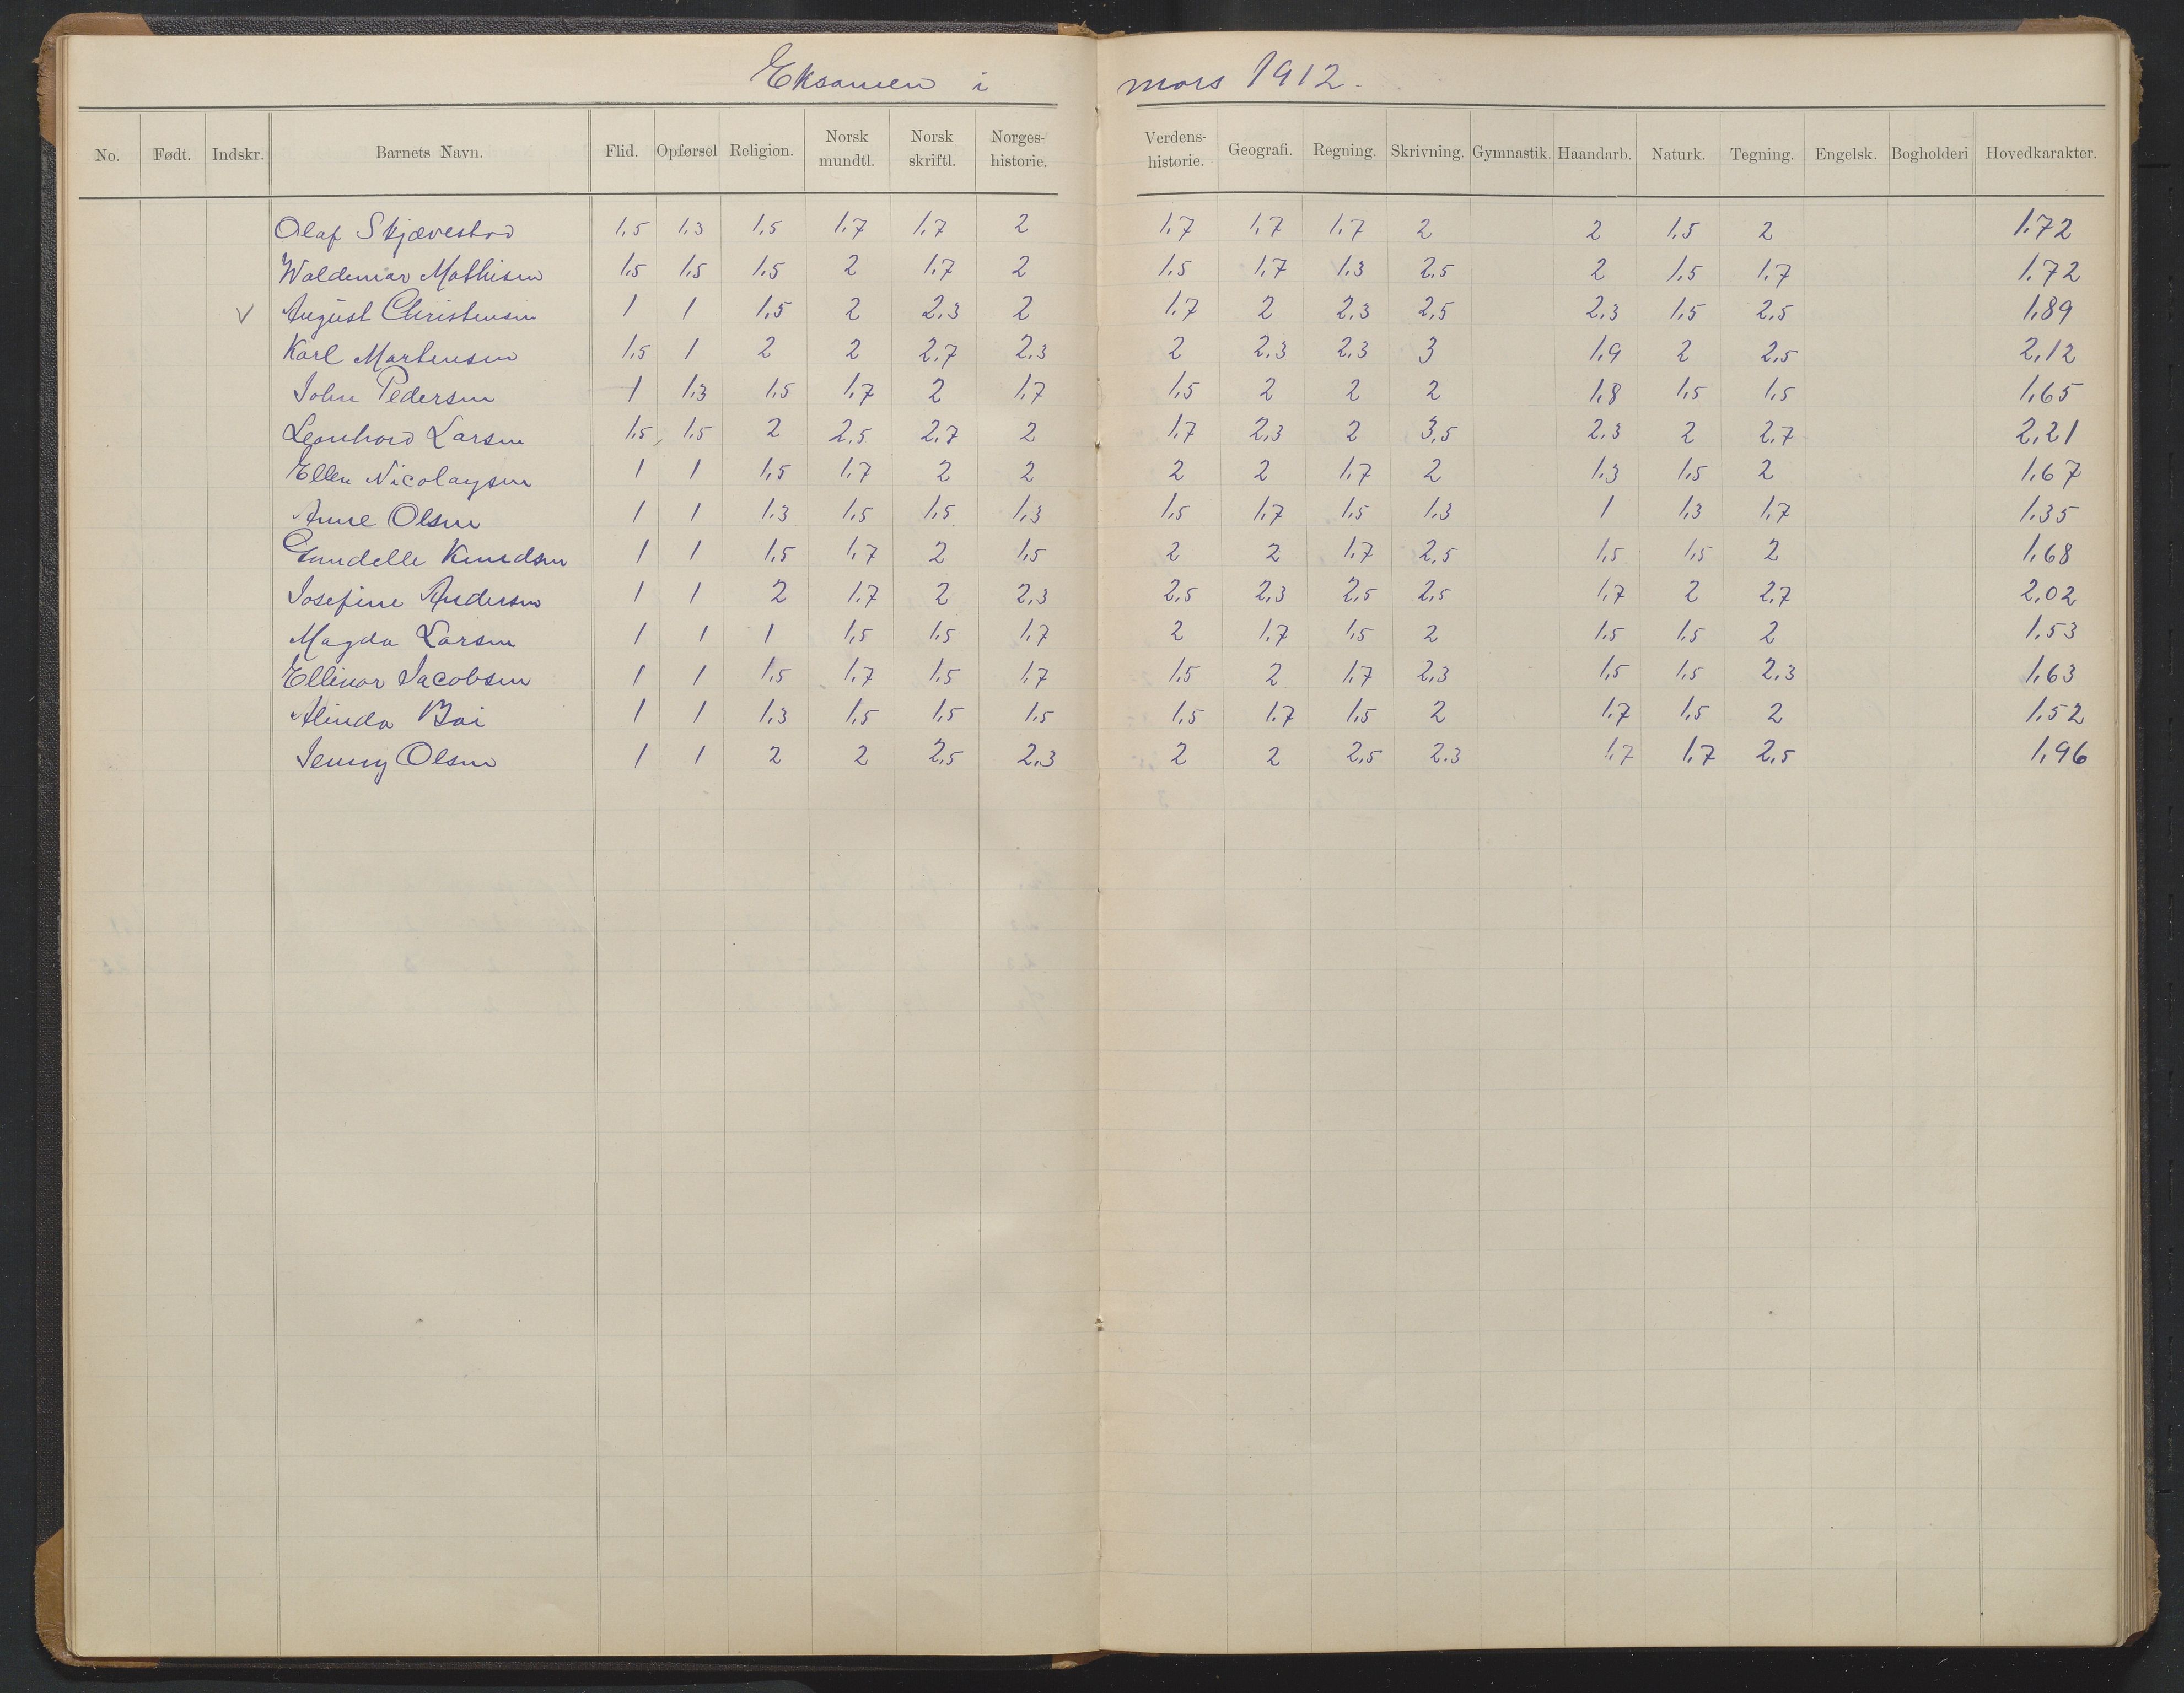 Eksamen i mars 1912.
No. Født. Indskr. Barnets Navn. Flid. Opførsel Religion. Norsk mundtl. Norsk skriftl. Norges-historie. Verdens-historie. Geografi. Regning. Skrivning. Gymnastik. Haandarb. Naturk. Tegning. Engelsk. Bogholderi Hovedkarakter.
Olaf Skjævestad 1,5 1,3 1,5 1,7 1,7 2 1,7 1,7 1,7 2 2 1,5 2 1,72
Waldemar Mathisen 1,5 1,5 1,5 2 1,7 2 1,5 1,7 1,3 2,5 2 1,5 1,7 1,72
V August Christensen 1 1 1,5 2 2,3 2 1,7 2 2,3 2,5 2,3 1,5 2,5 1,89
Karl Martensen 1,5 1 2 2 2,7 2,3 2 2,3 2,3 3 1,9 2 2,5 2,12
John Pedersen 1 1,3 1,5 1,7 2 1,7 1,5 2 2 2 1,8 1,5 1,5 1,65
Leonhard Larsen 1,5 1,5 2 2,5 2,7 2 1,7 2,3 2 3,5 2,3 2 2,7 2,21
Ellen Nicolaysen 1 1 1,5 1,7 2 2 2 2 1,7 2 1,3 1,5 2 1,67
Anne Olsen 1 1 1,3 1,5 1,5 1,3 1,5 1,7 1,5 1,3 1 1,3 1,7 1,35
Gundelle Knudsen 1 1 1,5 1,7 2 1,5 2 2 1,7 2,5 1,5 1,5 2 1,68
Josefine Andersen 1 1 2 1,7 2 2,3 2,5 2,3 2,5 2,5 1,7 2 2,7 2,02
Magda Larsen 1 1 1 1,5 1,5 1,7 2 1,7 1,5 2 1,5 1,5 2 1,53
Ellinor Jacobsen 1 1 1,5 1,7 1,5 1,7 1,5 2 1,7 2,3 1,5 1,5 2,3 1,63
Alinda Boi 1 1 1,3 1,5 1,5 1,5 1,5 1,7 1,5 2 1,7 1,5 2 1,52
Jenny Olsen 1 1 2 2 2,5 2,3 2 2 2,5 2,3 1,7 1,7 2,5 1,96